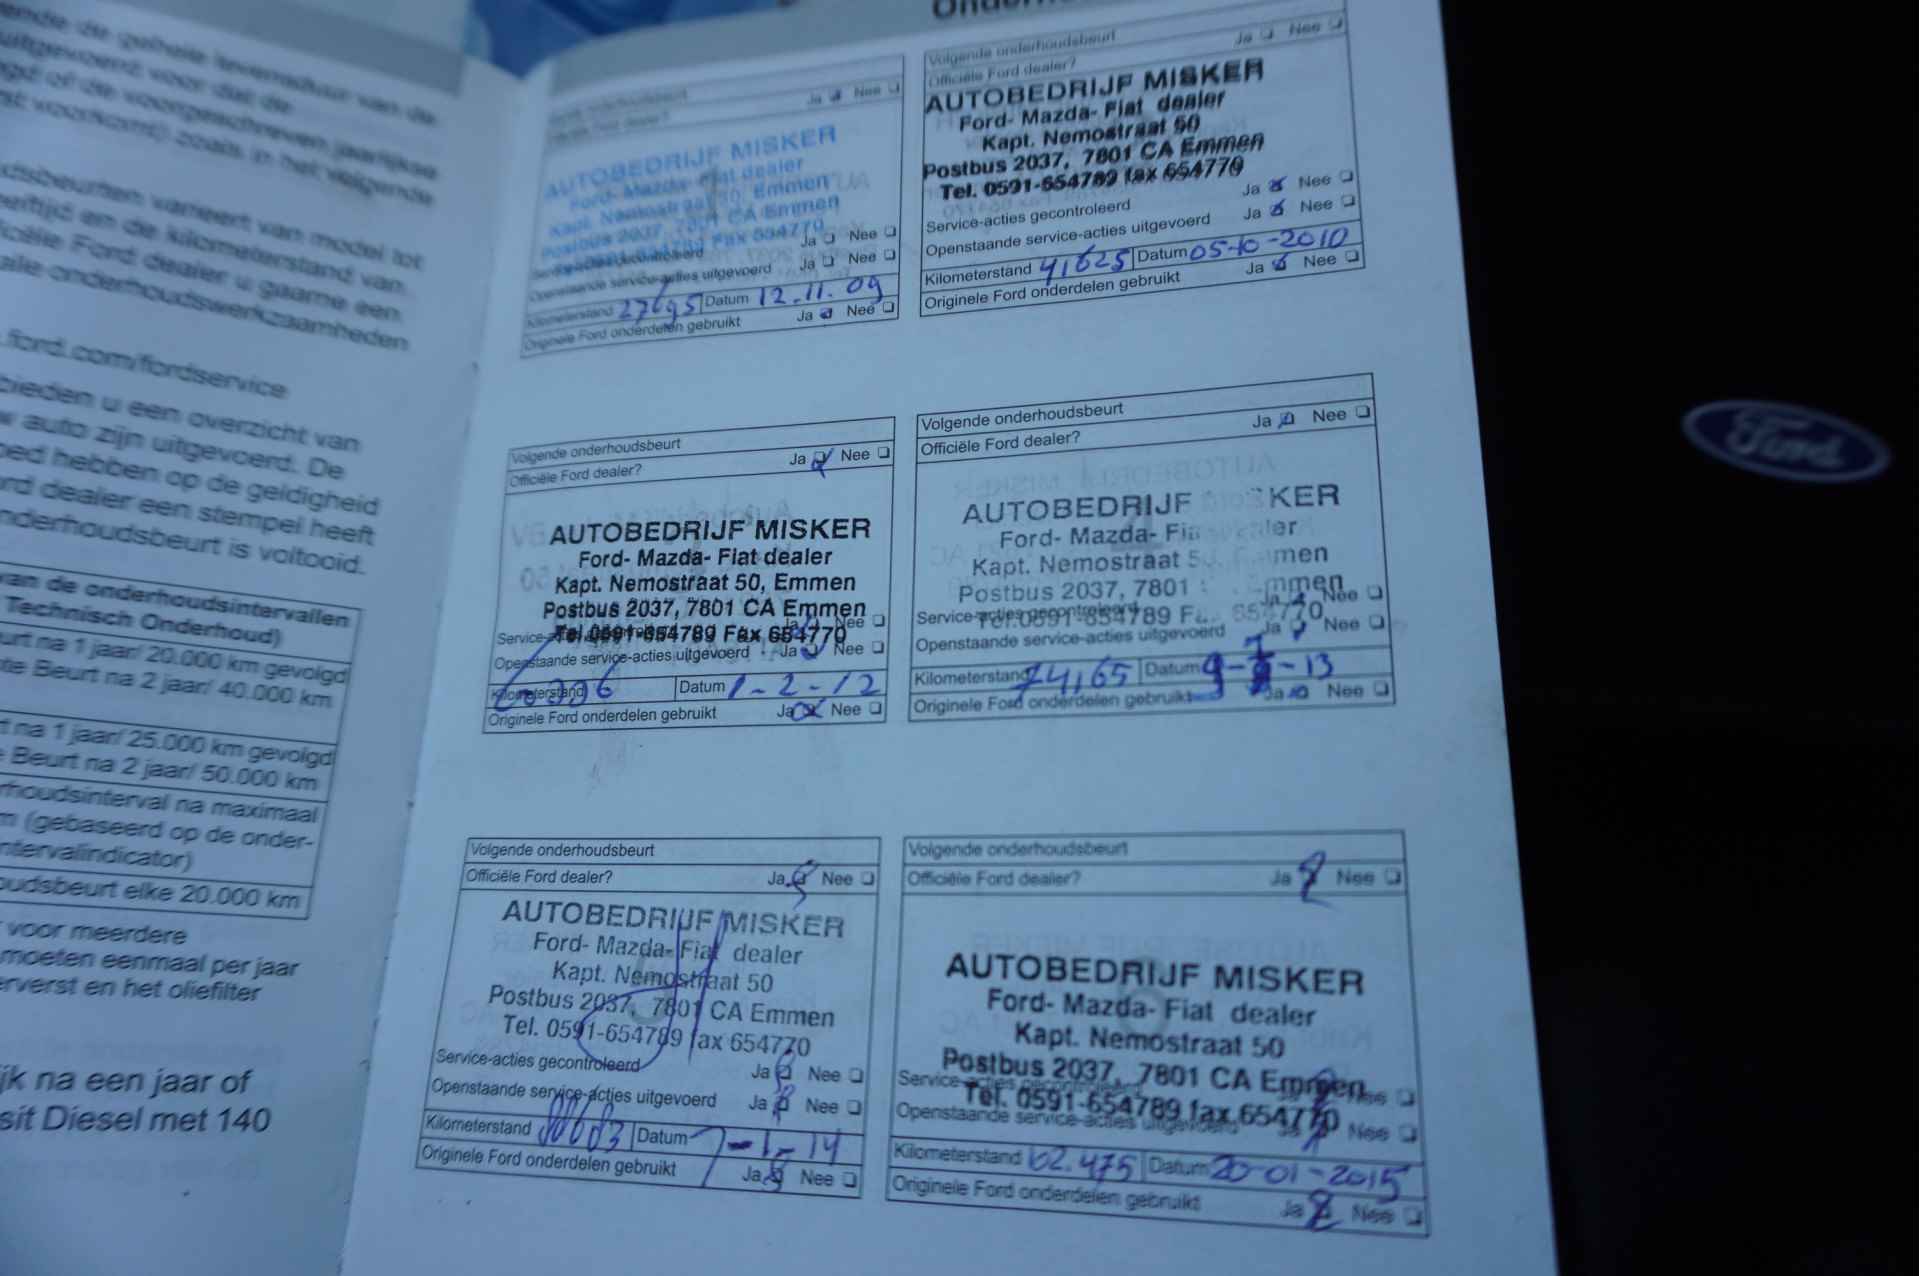 ende de gehele levensduur van de
uitgevoerd voor dat de
of de voorgeschreven jaarlijkse
voorkomt) zoals in het volgende
dsbeurten varieert van model tot
eeftijd en de kilometerstand van
iciële Ford dealer u gaarne een
alle onderhoudswerkzaamheden
.ford.com/fordservice
bieden u een overzicht van
w auto zijn uitgevoerd. De
oed hebben op de geldigheid
rd dealer een stempel heeft
nderhoudsbeurt is voltooid.
van de onderhoudsintervallen
Technisch Onderhoud)
urt na 1 jaar/ 20.000 km gevolgd
te Beurt na 2 jaar/ 40.000 km
rt na 1 jaar/ 25.000 km gevolgd
e Beurt na 2 jaar/ 50.000 km
rhoudsinterval na maximaal
m (gebaseerd op de onder-
ntervalindicator)
oudsbeurt elke 20.000 km
voor meerdere
moeten eenmaal per jaar
erverst en het oliefilter
jk na een jaar of
sit Diesel met 140
Ja Nee
AUTOBEDRIJF MISKER
Ford- Mazda- Fiat dealer
Kapt. Nemostraat 50, Emmen
Postbus 2037, 7801 CA Emmen
654789 Fax 654770
Service-acties gecontroleerd Ja Nee
Openstaande service-acties uitgevoerd Ja Nee
Kilometerstand 27695 Datum 12.11.09
Originele Ford onderdelen gebruikt Ja Nee
Volgende onderhoudsbeurt
Officiële Ford dealer? Ja Nee
AUTOBEDRIJF MISKER
Ford- Mazda- Fiat dealer
Kapt. Nemostraat 50
Postbus 2037, 7801 CA Emmen
Tel. 0591-654789 fax 654770
Service-acties gecontroleerd Ja Nee
Openstaande service-acties uitgevoerd Ja Nee
Kilometerstand 41625 Datum 05-10-2010
Originele Ford onderdelen gebruikt Ja Nee
Volgende onderhoudsbeurt
Officiële Ford dealer? Ja Nee
AUTOBEDRIJF MISKER
Ford- Mazda- Fiat dealer
Kapt. Nemostraat 50, Emmen
Postbus 2037, 7801 CA Emmen
Tel. 0591-654789 Fax 654770
Ja Nee
Openstaande service-acties uitgevoerd Ja Nee
Kilometerstand Datum 1-2-12
Originele Ford onderdelen gebruikt Ja Nee
Volgende onderhoudsbeurt
Officiële Ford dealer? Ja Nee
AUTOBEDRIJF SKER
Ford- Mazda- Fia dealer
Kapt. Nemostraat 50, Emmen
Postbus 2037, 7801 Emmen
Tel.0591-654789 Fa 654770
Service-acties gecontroleerd Ja Nee
Openstaande service-acties uitgevoerd Ja Nee
Kilometerstand 74165 Datum
Originele Ford onderdelen gebruikt Ja Nee
Volgende onderhoudsbeurt
Officiële Ford dealer? Ja Nee
AUTOBEDRIJF MISKER
Ford- Mazda- Fiat dealer
Kapt. Nemostraat 50
Postbus 2037, 7801 CA Emmen
Tel. 0591-654789 fax 654770
Service-acties gecontroleerd Ja Nee
Openstaande service-acties uitgevoerd Ja Nee
Kilometerstand Datum 7-1-14
Originele Ford onderdelen gebruikt Ja Nee
Volgende onderhoudsbeurt
Officiële Ford dealer? Ja Nee
AUTOBEDRIJF MISKER
Ford- Mazda- Fiat dealer
Kapt. Nemostraat 50
Postbus 2037, 7801 CA Emmen
Tel. 0591-654789 fax 654770
Service-acties gecontroleerd Nee
Openstaande service-acties uitgevoerd Ja Nee
Kilometerstand 62.475 Datum 20-01-2015
Originele Ford onderdelen gebruikt Ja Nee
Ford